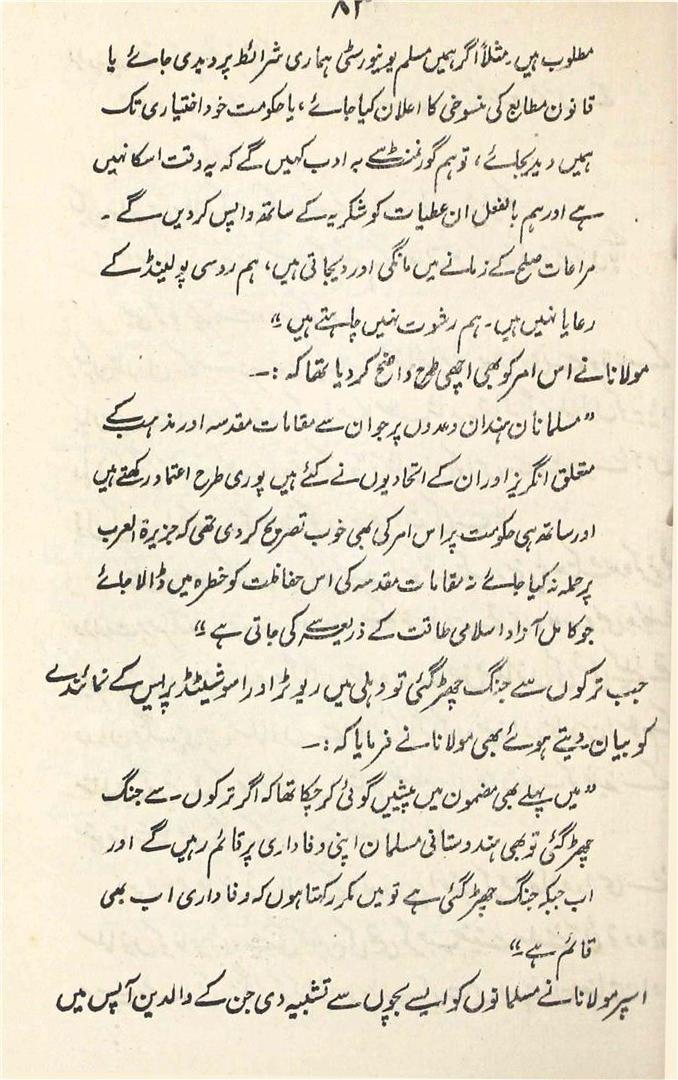 ۸۲
مطلوب ہیں۔ مثلاً اگر ہمیں مسلم یونیورسٹی ہماری شرائط پر دیدی جائے یا
قانون مطابع کی منسوخی کا اعلان کیا جائے، یا حکومت خود اختیاری تک
ہمیں دیدیجائے، تو ہم گورنمنٹ سے بہ ادب کہیں گے کہ یہ وقت اسکا نہیں
ہے اور ہم بالفعل ان عطیات کو شکریہ کے ساتھ واپس کر دیں گے۔
مراعات صلح کے زمانے میں مانگی اور دیجاتی ہیں، ہم روسی پولینڈ کے
رعایا نہیں ہیں۔ ہم رشوت نہیں چاہتے ہیں"
مولانا نے اس امر کو بھی اچھی طرح واضح کر دیا تھا کہ :۔
"مسلمانان ہند ان وعدوں پر جو ان سے مقامات مقدسہ اور مذہب کے
متعلق انگریز اور ان کے اتحادیوں نے کئے ہیں پوری طرح اعتماد رکھتے ہیں
اور ساتھ ہی حکومت پر اس امر کی بھی خوب تصریح کر دی تھی کہ جزیرۃ العرب
پر حملہ نہ کیا جائے نہ مقامات مقدسہ کی اس حفاظت کو خطرہ میں ڈالا جائے
جو کامل آزاد اسلامی طاقت کے ذریعہ سے کی جاتی ہے"
جب ترکوں سے جنگ چھڑ گئی تو دہلی میں ریوٹر اور اسوشیٹڈ پریس کے نمائندے
کو بیان دیتے ہوئے بھی مولانا نے فرمایا کہ :۔
"میں پہلے بھی مضمون میں پیشیں گوئی کر چکا تھا کہ اگر ترکوں سے جنگ
چھڑ گئی تو بھی ہندوستانی مسلمان اپنی وفاداری پر قائم رہیں گے اور
اب جبکہ جنگ چھڑ گئی ہے تو میں مکرر کہتا ہوں کہ وفاداری اب بھی
قائم ہے"
اسپر مولانا نے مسلمانوں کو ایسے بچوں سے تشبیہ دی جن کے والدین آپس میں